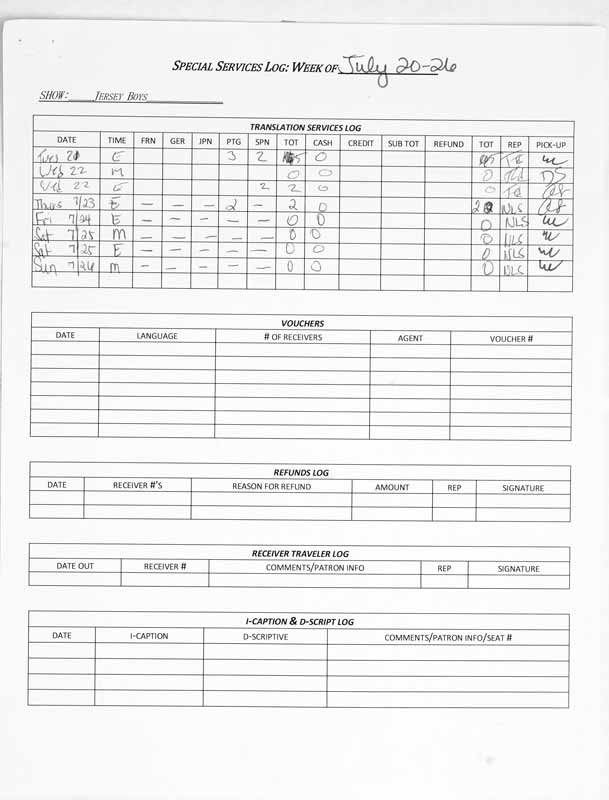 SPECIAL SERVICES LOG: WEEK OF July 20-26
SHOW: JERSEY BOYS
TRANSLATION SERVICES LOG
DATE TIME FRN GER JPN PTG SPN TOT CASH CREDIT SUB TOT REFUND TOT REP PICK-UP
Tues 21 E 3 2 5 0
Wed 22 M 0 0 0
Wed 22 E 2 2 0 0
Thurs 7/23 E — — — 2 — 2 0 2 NLS
Fri 7/24 E — — — — — 0 0 0 NLS
Sat 7/25 M — — — — — 0 0 0 NLS
Sat 7/25 E — — — — — 0 0 0 NLS
Sun 7/26 M — — — — — 0 0 0 NLS
VOUCHERS
DATE LANGUAGE # OF RECEIVERS AGENT VOUCHER #
REFUNDS LOG
DATE RECEIVER #'S REASON FOR REFUND AMOUNT REP SIGNATURE
RECEIVER TRAVELER LOG
DATE OUT RECEIVER # COMMENTS/PATRON INFO REP SIGNATURE
I-CAPTION & D-SCRIPT LOG
DATE I-CAPTION D-SCRIPTIVE COMMENTS/PATRON INFO/SEAT #